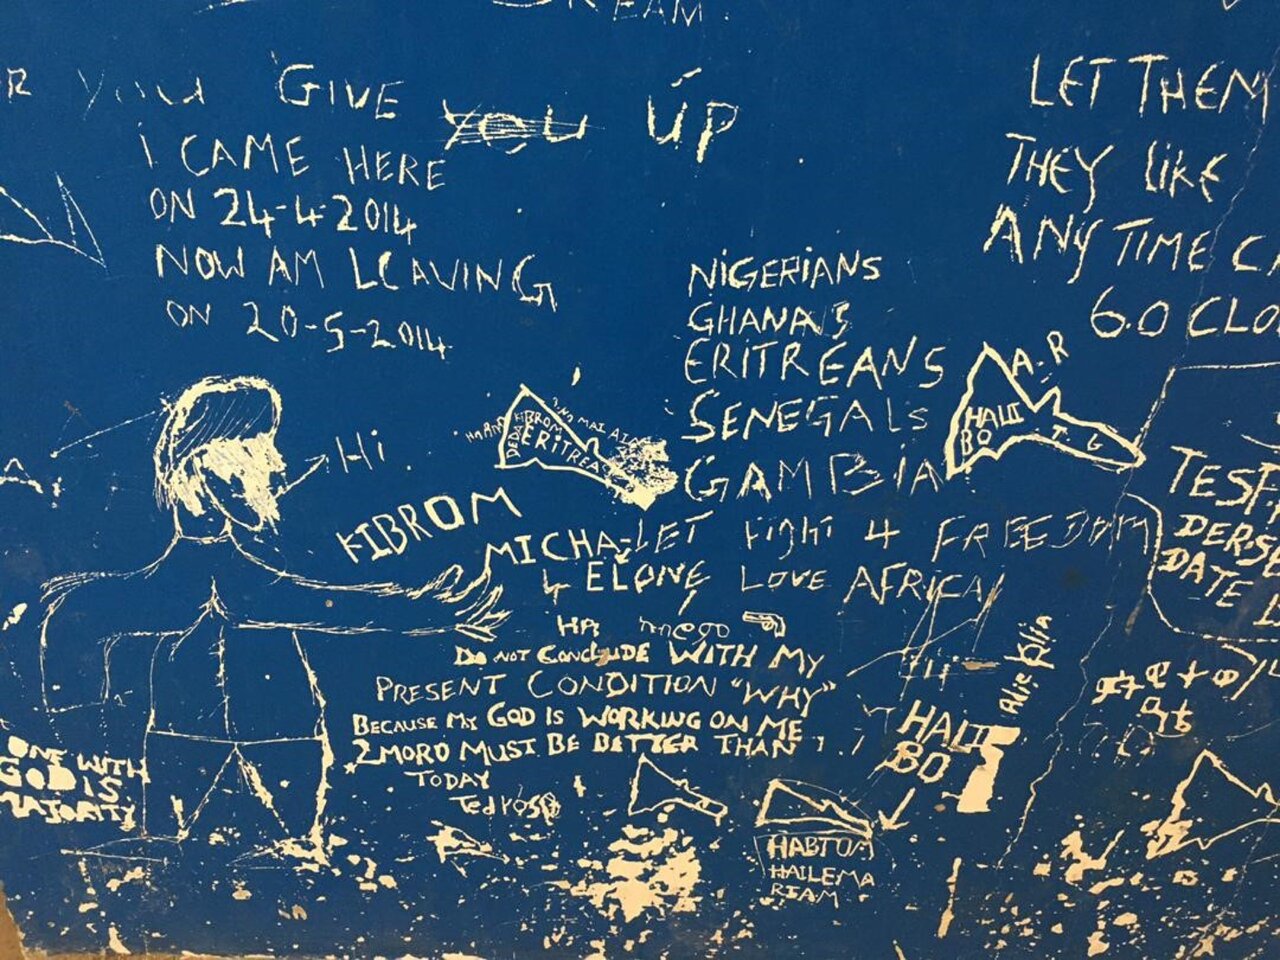 DREAM.
R YOU GIVE YOU UP
i CAME HERE
ON 24-4-2014
NOW AM LEAVING
ON 20-5-2014
LET THEM
THEY LIKE
ANY TIME
6.0 CLO
NIGERIANS
GHANA'S
ERITREANS
SENEGALS
GAMBIA
Hi
FIBROM
ERITREA
A-R
HALIT
BO
T. G
KIBROM
MICHA-LET FigHt 4 FREEDOM
ELONE LOVE AFRICA
HA
DO NOT CONCLUDE WITH MY
PRESENT CONDITION "WHY"
BECAUSE MY GOD IS WORKING ON ME
2MORO MUST BE BETTER THAN
TODAY
TedroS
ONE WITH
GOD IS
MAJORITY
HALIT
BO
HABTOM
HAILEMA
RIAM
TESF
DERSE
DATE